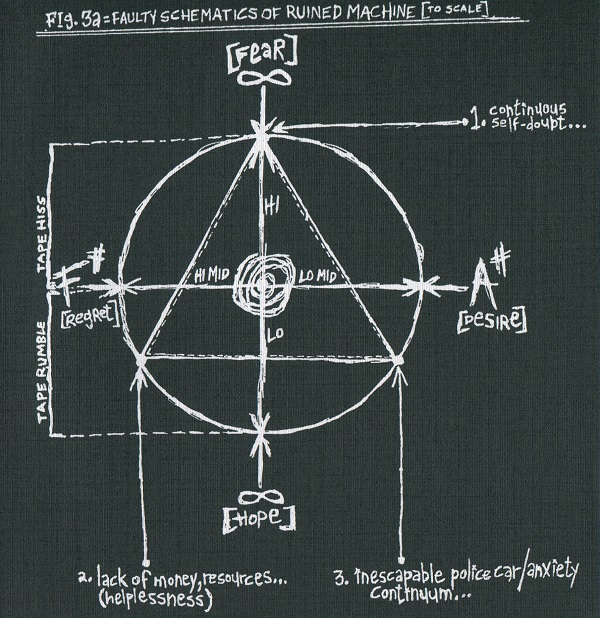 Fig. 3a = FAULTY SCHEMATICS OF RUINED MACHINE [TO SCALE]
[FeaR]
∞
1. continuous
self-doubt...
TAPE HISS
HI
F#
[RegRet]
HI MID
LO MID
A#
[DESiRe]
LO
TAPE RUMBLE
∞
[HOPe]
2. lack of money, resources...
(helplessness)
3. inescapable police car/anxiety
continuum...